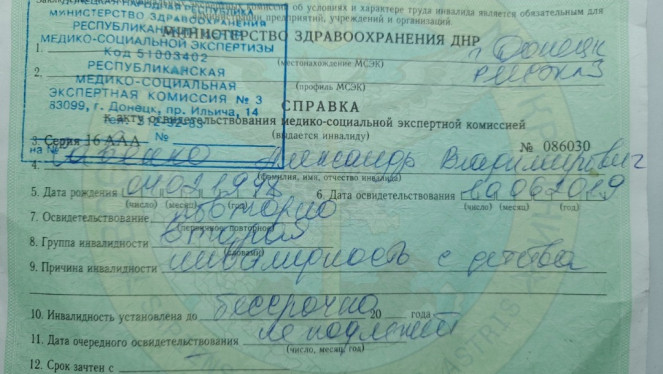 комиссий об условиях и характере труда инвалида является обязательным для
предприятий, учреждений и организаций.
МИНИСТЕРСТВО ЗДРАВООХРАНЕНИЯ ДНР
ДОНЕЦКАЯ НАРОДНАЯ РЕСПУБЛИКА
МИНИСТЕРСТВО ЗДРАВООХРАНЕНИЯ
РЕСПУБЛИКАНСКАЯ
МЕДИКО-СОЦИАЛЬНОЙ ЭКСПЕРТИЗЫ
КОД 51003402
РЕСПУБЛИКАНСКАЯ
МЕДИКО-СОЦИАЛЬНАЯ
ЭКСПЕРТНАЯ КОМИССИЯ № 3
83099, г. Донецк, пр. Ильича, 14
№
на №
1. г. Донецк
(местонахождение МСЭК)
2.
(профиль МСЭК)
СПРАВКА
к акту освидетельствования медико-социальной экспертной комиссией
(выдается инвалиду)
3. Серия 16 ААА № 086030
4. Александр Владимирович
(фамилия, имя, отчество инвалида)
5. Дата рождения 04 02 1998 6. Дата освидетельствования 19 06 2019
(число) (месяц) (год) (число) (месяц) (год)
7. Освидетельствование повторно
(первичное, повторное)
8. Группа инвалидности вторая
(словами)
9. Причина инвалидности инвалидность с детства
10. Инвалидность установлена до бессрочно 20 года
11. Дата очередного освидетельствования не подлежит
(число, месяц, год)
12. Срок зачтен с